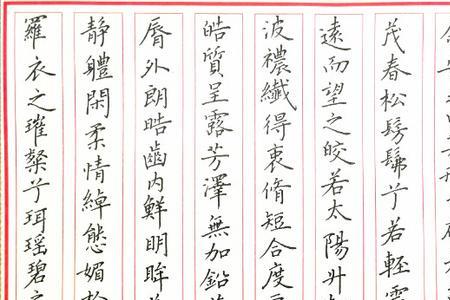 茂春松髣髴兮若輕雲
遠而望之皎若太陽升
波襛纖得衷脩短合度
皓質呈露芳澤無加鉛
脣外朗皓齒內鮮明眸
靜軆閑柔情綽態媚於
羅衣之璀粲兮珥瑤碧之